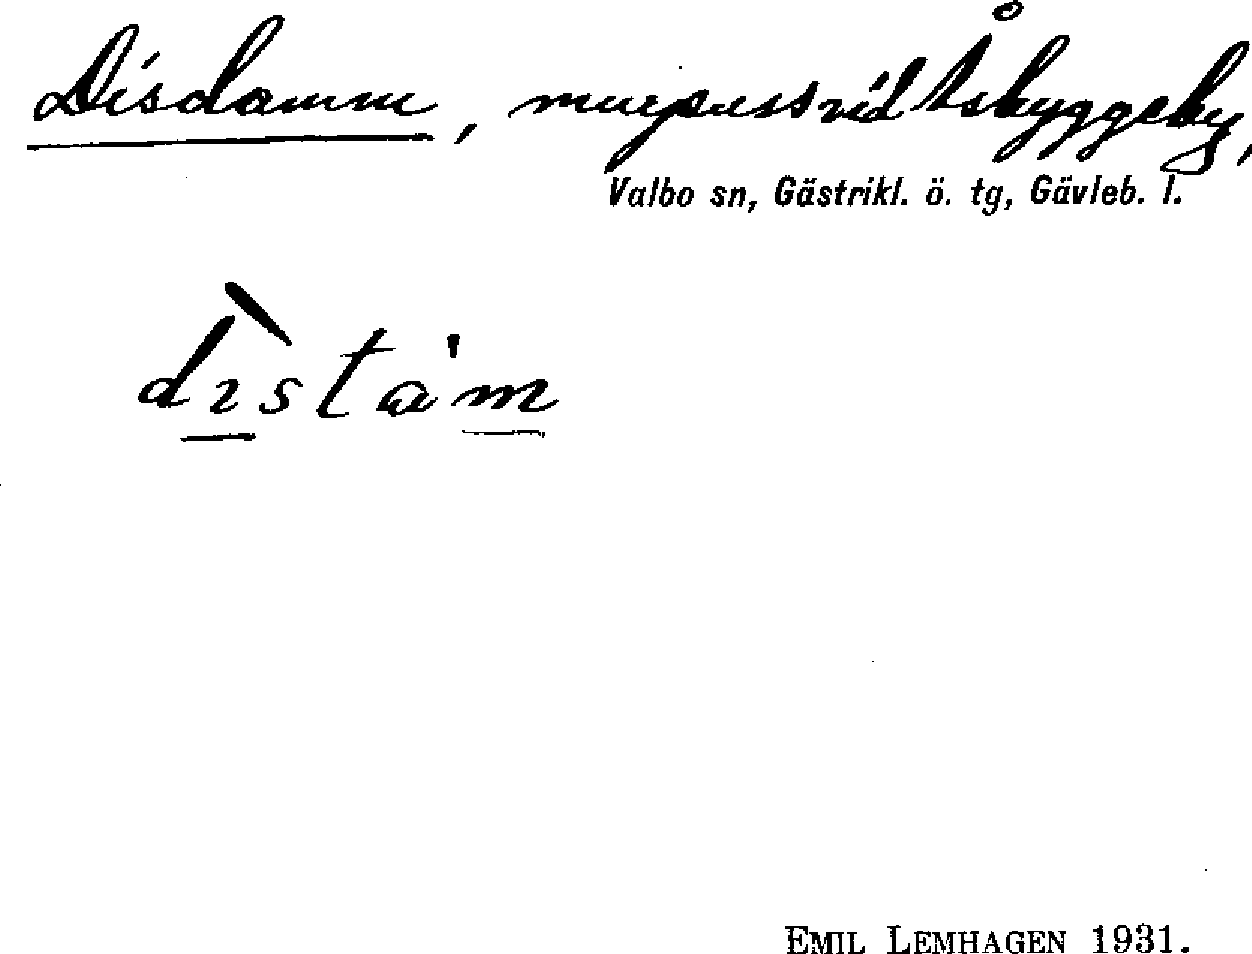 Disdamm, myrpuss vid Åbyggeby,
Valbo sn, Gästrikl. ö. tg, Gävleb. l.
dìstam
EMIL LEMHAGEN 1931.